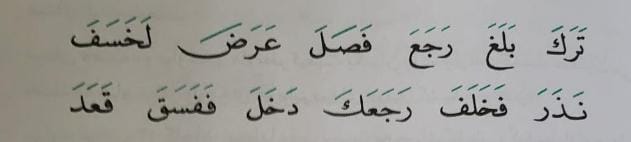 تَرَكَ بَلَغَ رَجَعَ فَصَلَ عَرَضَ لَخَسَفَ
نَذَرَ فَخَلَفَ رَجَعَكَ دَخَلَ فَفَسَقَ قَعَدَ